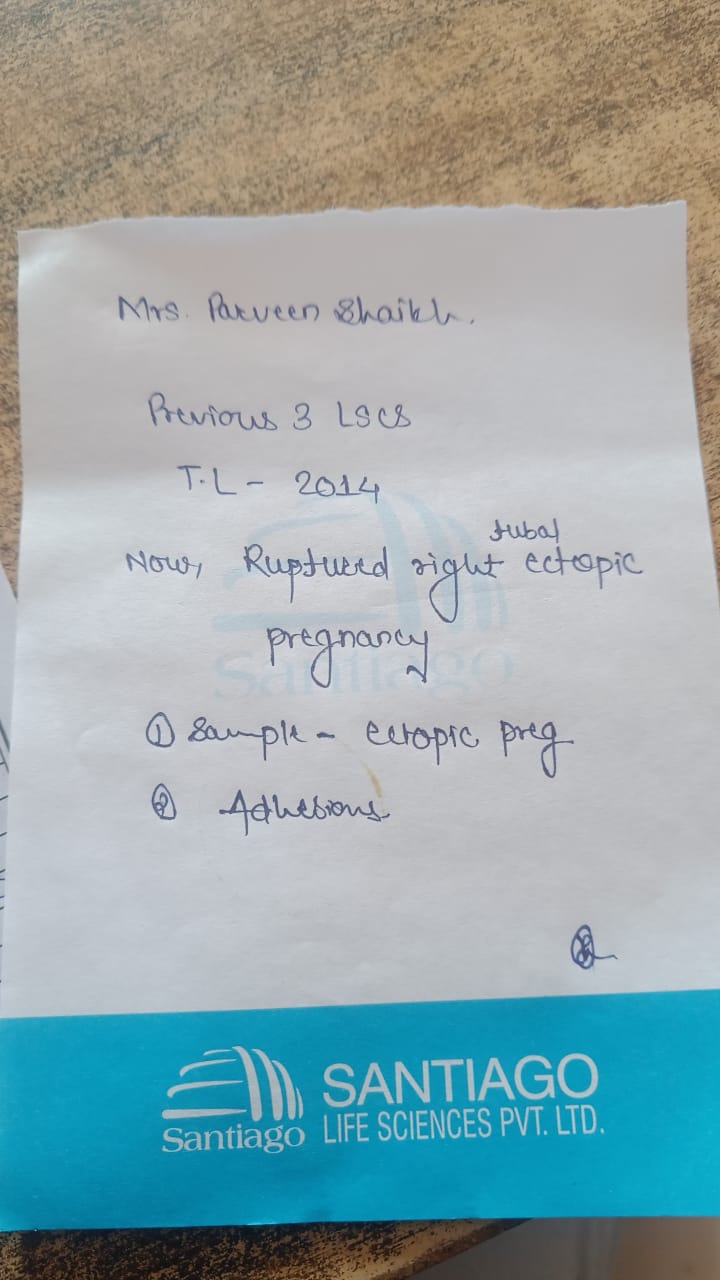 Mrs. Parveen Shaikh.
Previous 3 LSCS
T.L - 2014
Now, Ruptured right tubal ectopic
pregnancy
① Sample - ectopic preg
② Adhesions
Santiago
SANTIAGO
Santiago LIFE SCIENCES PVT. LTD.